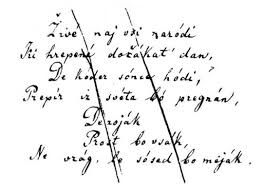 Živé naj vsi naródi
Ki hrepené dočákat' dan,
De koder sónce hódi,
Prepír iz svéta bó pregnán,
De roják
Prost bo vsák,
Ne vrág, le sósed bo méják.